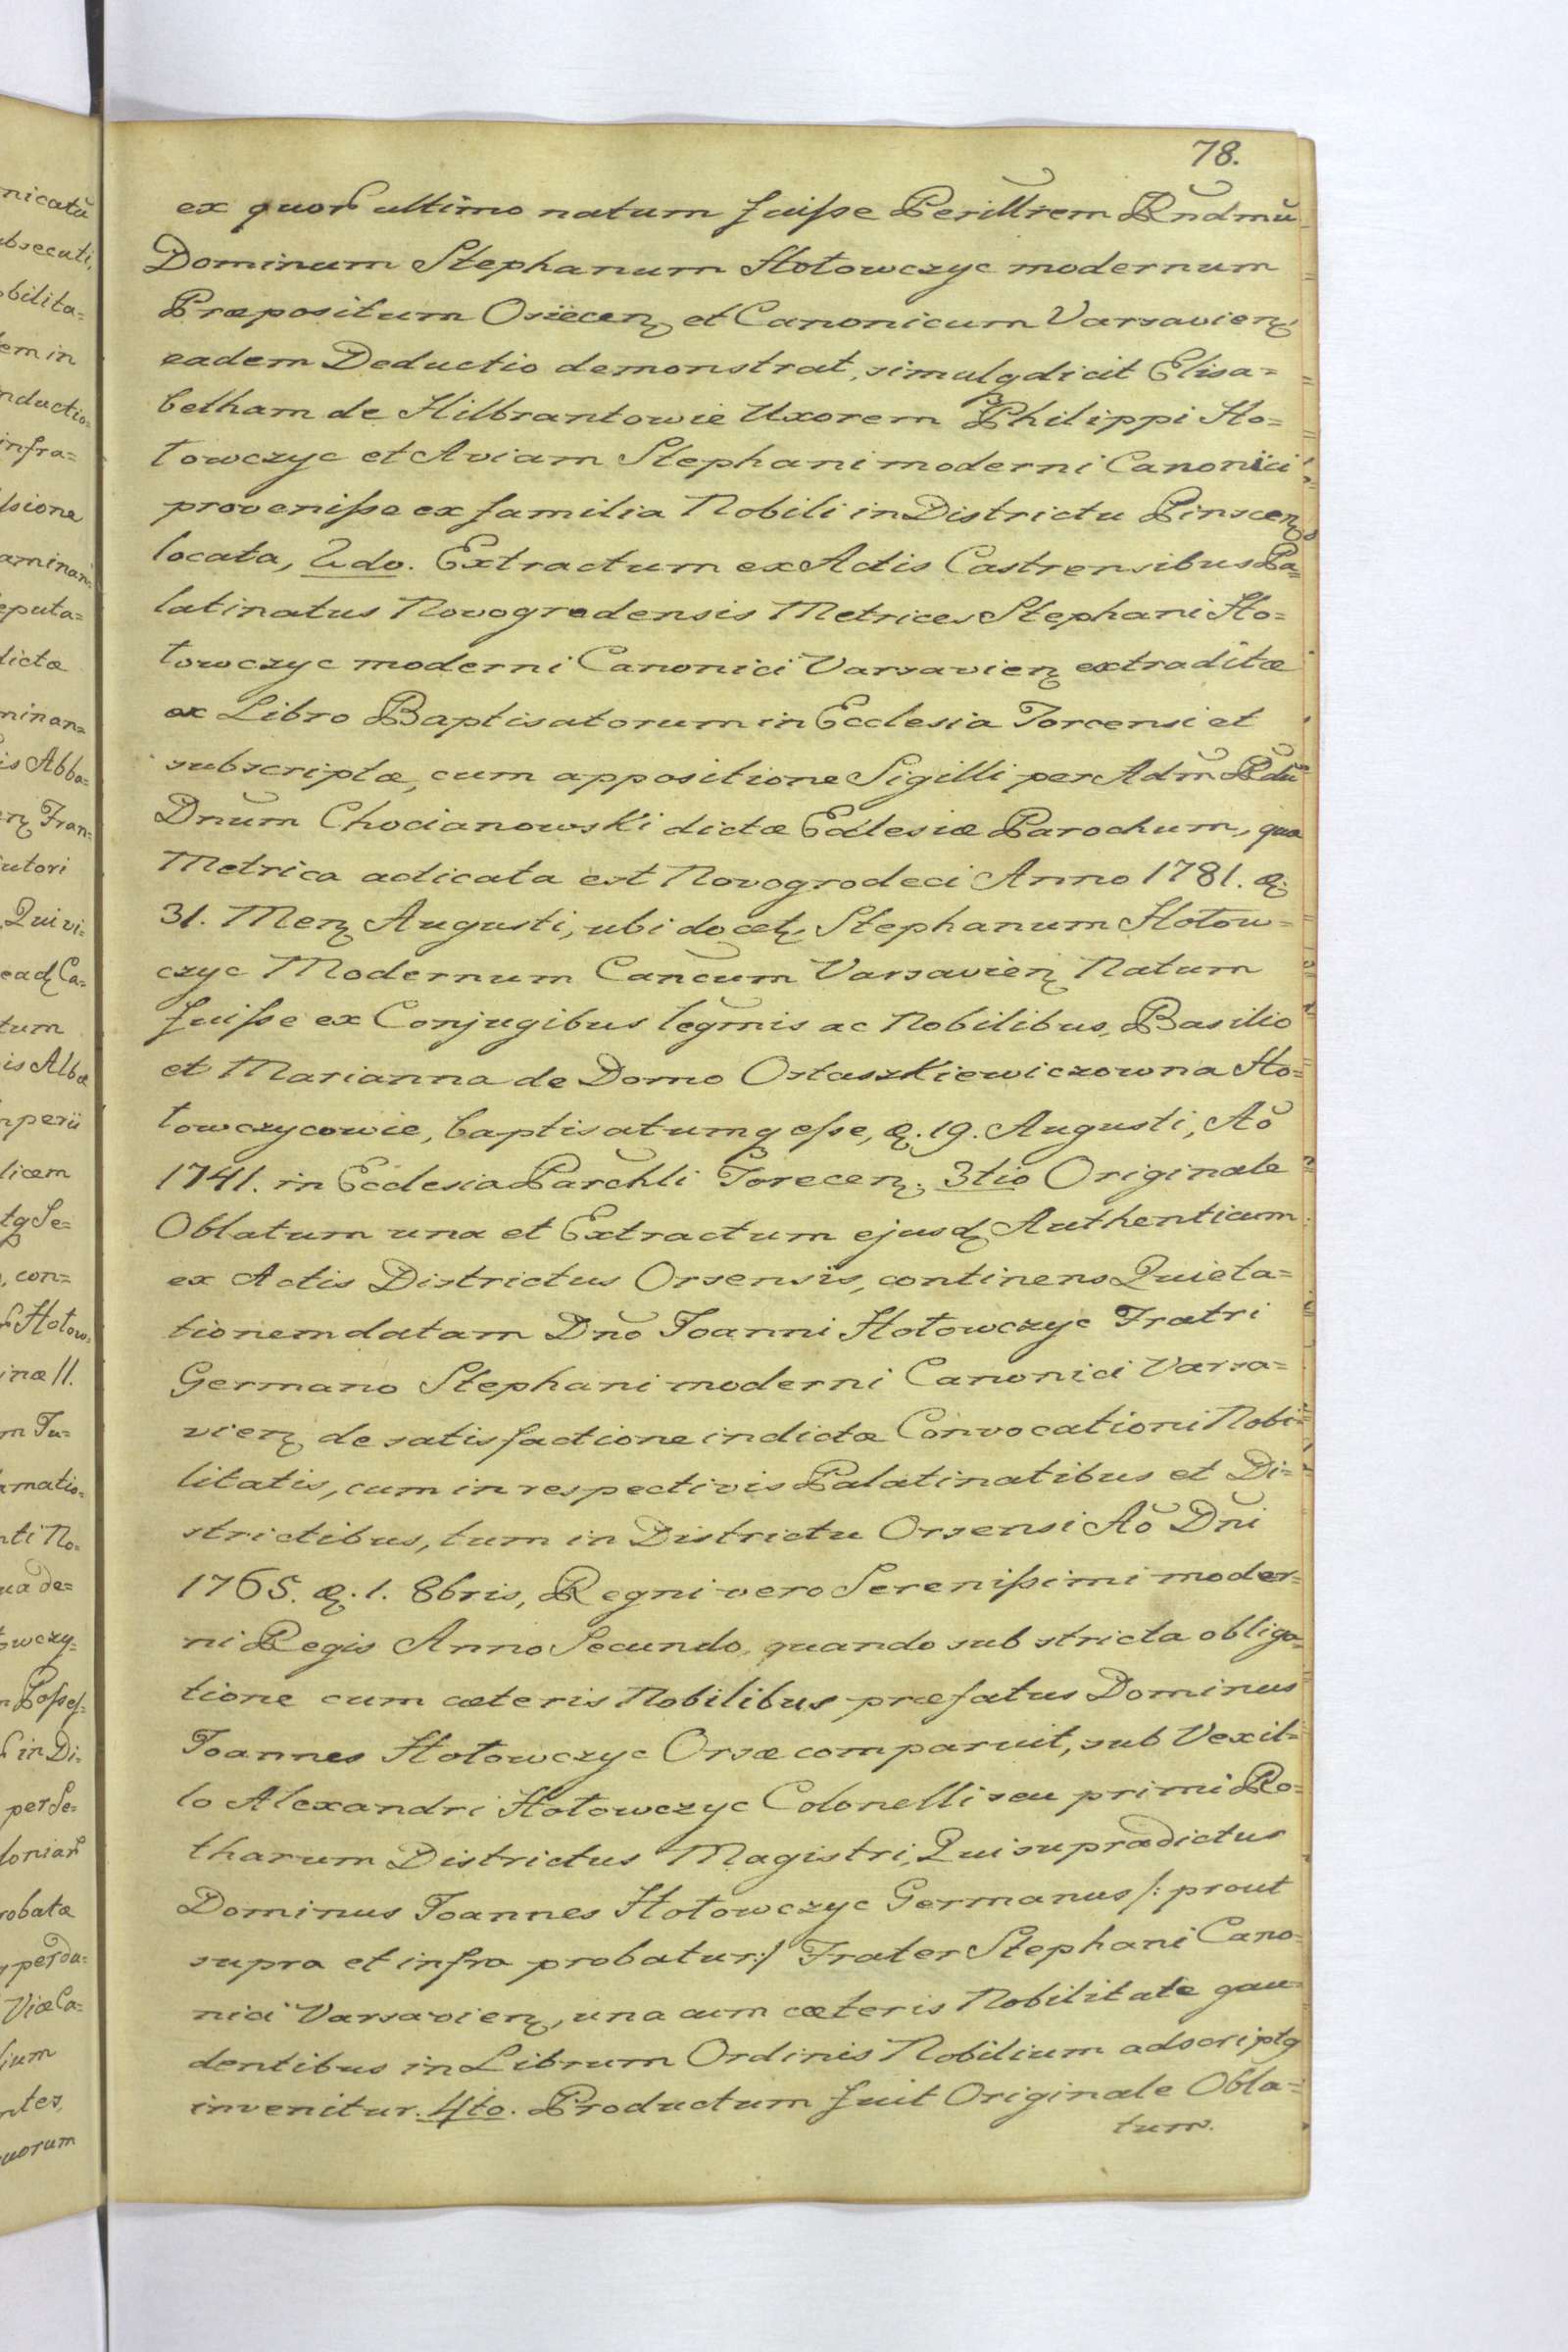 78.
ex quoꝝ ultimo natum fuiſse Perillrem Rndmũ
Dominum Stephanum Hołowczyc modernum
Præpositum Osiecen̨ et Canonicum Varsavien̨
eadem Deductio demonstrat, simulq̨ dicit Elisa=
betham de Hilbrantowie Uxorem Philippi Ho=
łowczyc et Aviam Stephani moderni Canonici
proveniſse ex familia Nobili in Districtu Pinscen̨
locata, 2do. Extractum ex Actis Castrensibus Pa=
latinatus Novogrodensis Metrices Stephani Ho=
łowczyc moderni Canonici Varsavien̨ extraditæ
ex Libro Baptisatorum in Ecclesia Torcensi et
subscriptæ, cum appositione Sigilli per Adm̃ Rdũ
Dnũm Chocianowski dictæ Ecclesiæ Parochum, quæ
Metrica acticata est Novogrodeci Anno 1781. æ.
31. Men̨ Augusti, ubi docet̨ Stephanum Hołow=
czyc Modernum Cancum Varsavien̨ Natum
fuiſse ex Conjugibus legmis ac Nobilibus, Basilio
et Marianna de Domo Ostaszkiewiczowna Ho=
łowczycowie, baptisatumq̨ eſse, æ. 19. Augusti, Aõ
1741. in Ecclesia Parchli Torecen̨. 3tio Originale
Oblatum una et Extractum ejusd̨ Authenticum
ex Actis Districtus Orsensis, continens Quieta=
tionem datam Dño Joanni Hołowczyc Fratri
Germano Stephani moderni Canonici Varsa=
vien̨ de satisfactione indictæ Convocationi Nobi=
litatis, cum in respectivis Palatinatibus et Di=
strictibus, tum in Districtu Orsensi Aõ Dñi
1765. æ. 1. 8bris, Regni vero Sereniſsimi moder=
ni Regis Anno Secundo, quando sub stricta obliga=
tione cum cæteris Nobilibus præfatus Dominus
Joannes Hołowczyc Orsæ comparuit, sub Vexil=
lo Alexandri Hołowczyc Colonelli seu primi Ro=
tharum Districtus Magistri, Qui supradictus
Dominus Joannes Hołowczyc Germanus /: prout
supra et infra probatur:/ Frater Stephani Cano=
nici Varsavien̨, una cum cæteris Nobilitate gau=
dentibus in Librum Ordinis Nobilium adscriptq
invenitur. 4to. Productum fuit Originale Obla=
tum.